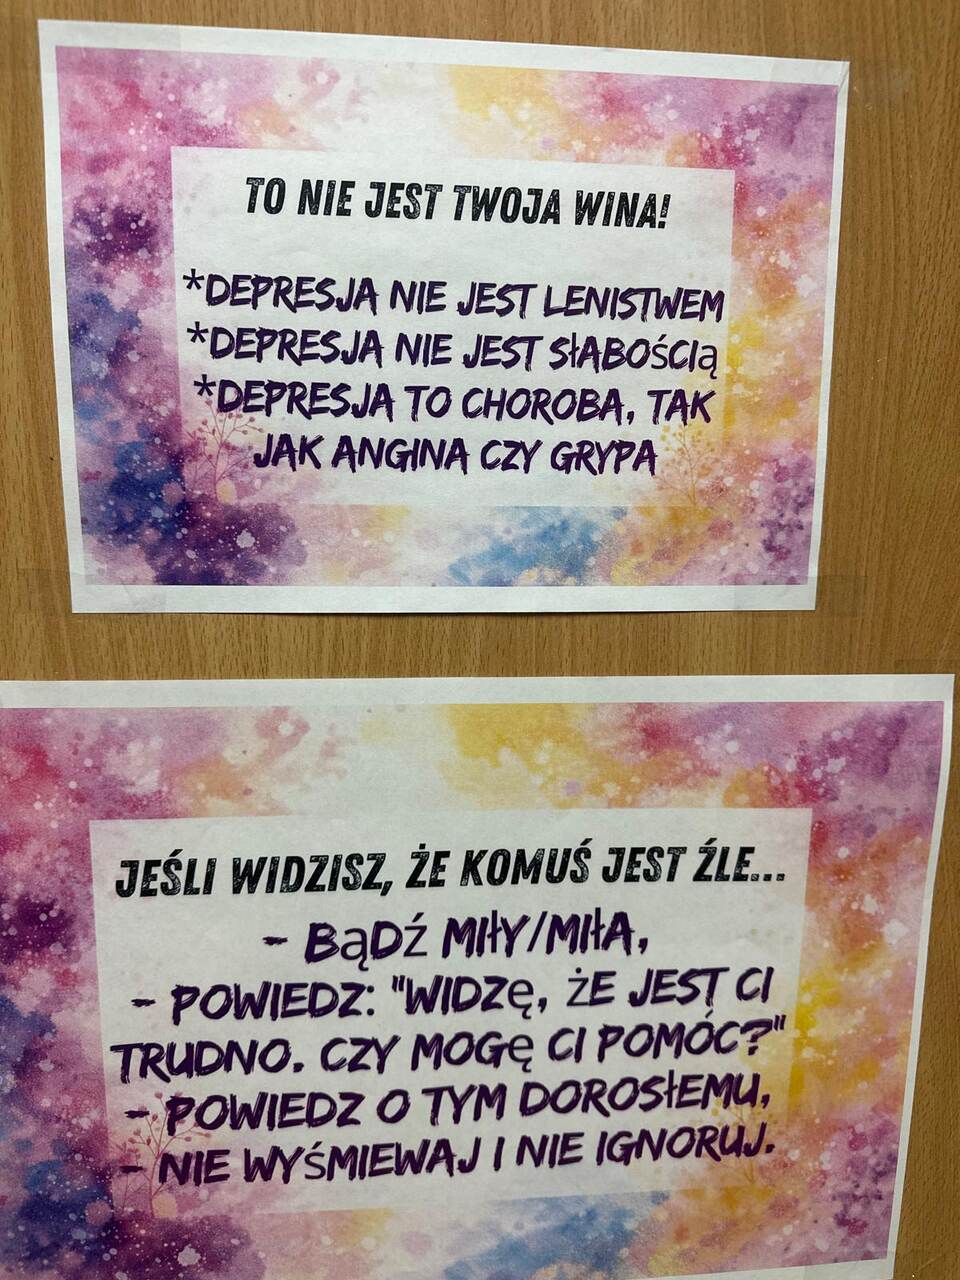 TO NIE JEST TWOJA WINA!
*DEPRESJA NIE JEST LENISTWEM
*DEPRESJA NIE JEST SŁABOŚCIĄ
*DEPRESJA TO CHOROBA, TAK
JAK ANGINA CZY GRYPA
JEŚLI WIDZISZ, ŻE KOMUŚ JEST ŹLE...
- BĄDŹ MIŁY/MIŁA,
- POWIEDZ: "WIDZĘ, ŻE JEST CI
TRUDNO. CZY MOGĘ CI POMÓC?"
- POWIEDZ O TYM DOROSŁEMU,
- NIE WYŚMIEWAJ I NIE IGNORUJ.